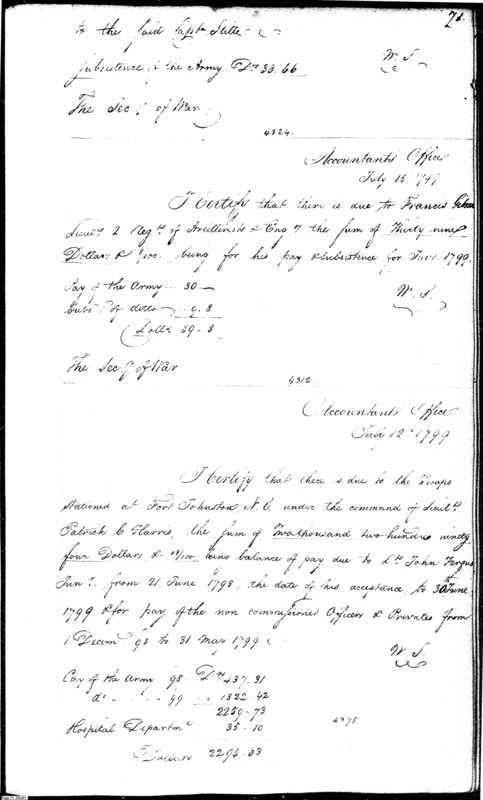 71.
to the said Capt. Stille
Subsistence of the Army Drs 38.66
W. S.
The Secy of War
4324
Accountants Office
July 15 1799
I Certify that there is due to Francis Gibson
Lieut. 2 Regt. of Artillerists & Engrs the sum of Thirty nine
Dollars & 8/100. being for his pay & subsistence for June. 1799.
Pay of the Army 30
Subs. of ditto 9. 8
Dolls 39. 8
W. S.
The Secy of War
4312
Accountants Office
July 12 1799
I Certify that there is due to the Troops
stationed at Fort Johnston N. C. under the command of Lieut.
Patrick C Harris, the sum of Two thousand two hundred ninety
four Dollars & 83/100, being balance of pay due to Lt. John Fergus
Junr. from 21 June 1798, the date of his acceptance to 30th June
1799 & for pay of the non commissioned Officers & Privates from
1 Decemr 98 to 31 May 1799.
W. S.
Pay of the Army 98 Drs 437. 31
do 99 1822 42
2259 - 73
Hospital Departmt 35 - 10
4375
Dollars 2294. 83